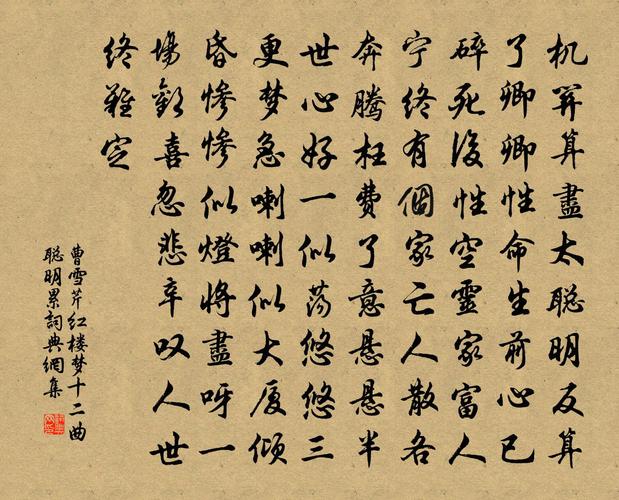 机关算盡太聪明反算
了卿卿性命生前心已
碎死後性空靈家富人
宁终有個家亡人散各
奔腾枉费了意悬悬半
世心好一似荡悠悠三
更梦急喇喇似大厦倾
昏惨惨似燈将盡呀一
場歡喜忽悲辛叹人世
终難定
曹雪芹红楼梦十二曲
聪明累詞典網集